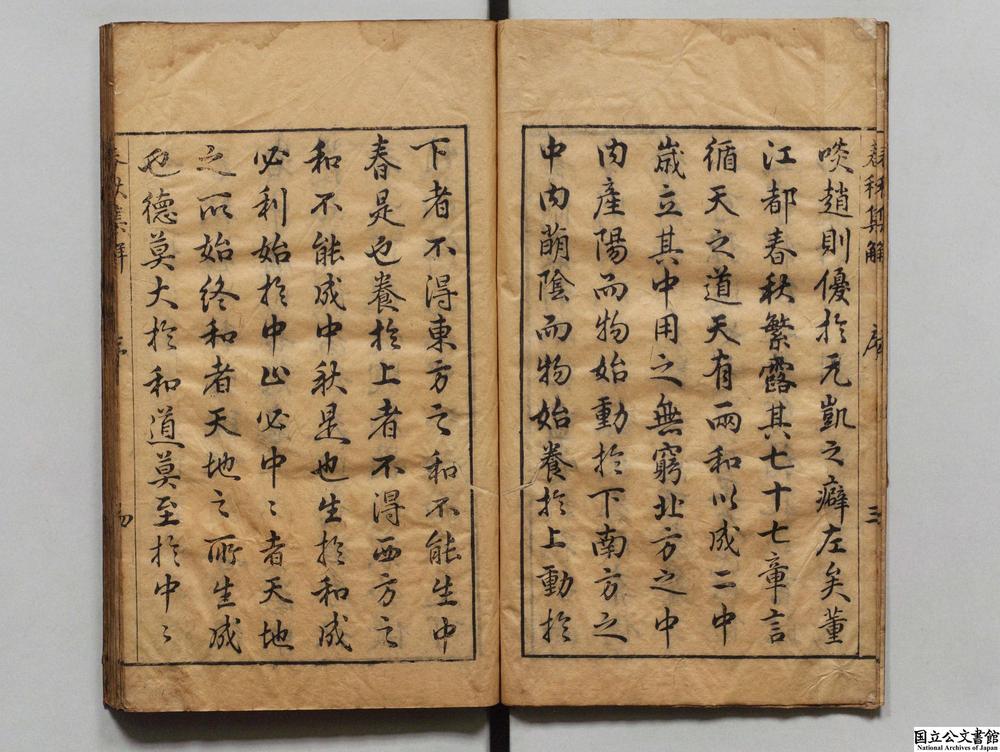 春秋集解 序 三
啖趙則優於元凱之癖左矣董
江都春秋繁露其七十七章言
循天之道天有兩和以成二中
歲立其中用之無窮北方之中
内產陽而物始動於下南方之
中内萌陰而物始養於上動於
下者不得東方之和不能生中
春是也養於上者不得西方之
和不能成中秋是也生於和成
必和始於中止必中〻者天地
之所始終和者天地之所生成
也德莫大於和道莫至於中〻
春秋集解 序 四
国立公文書館
National Archives of Japan